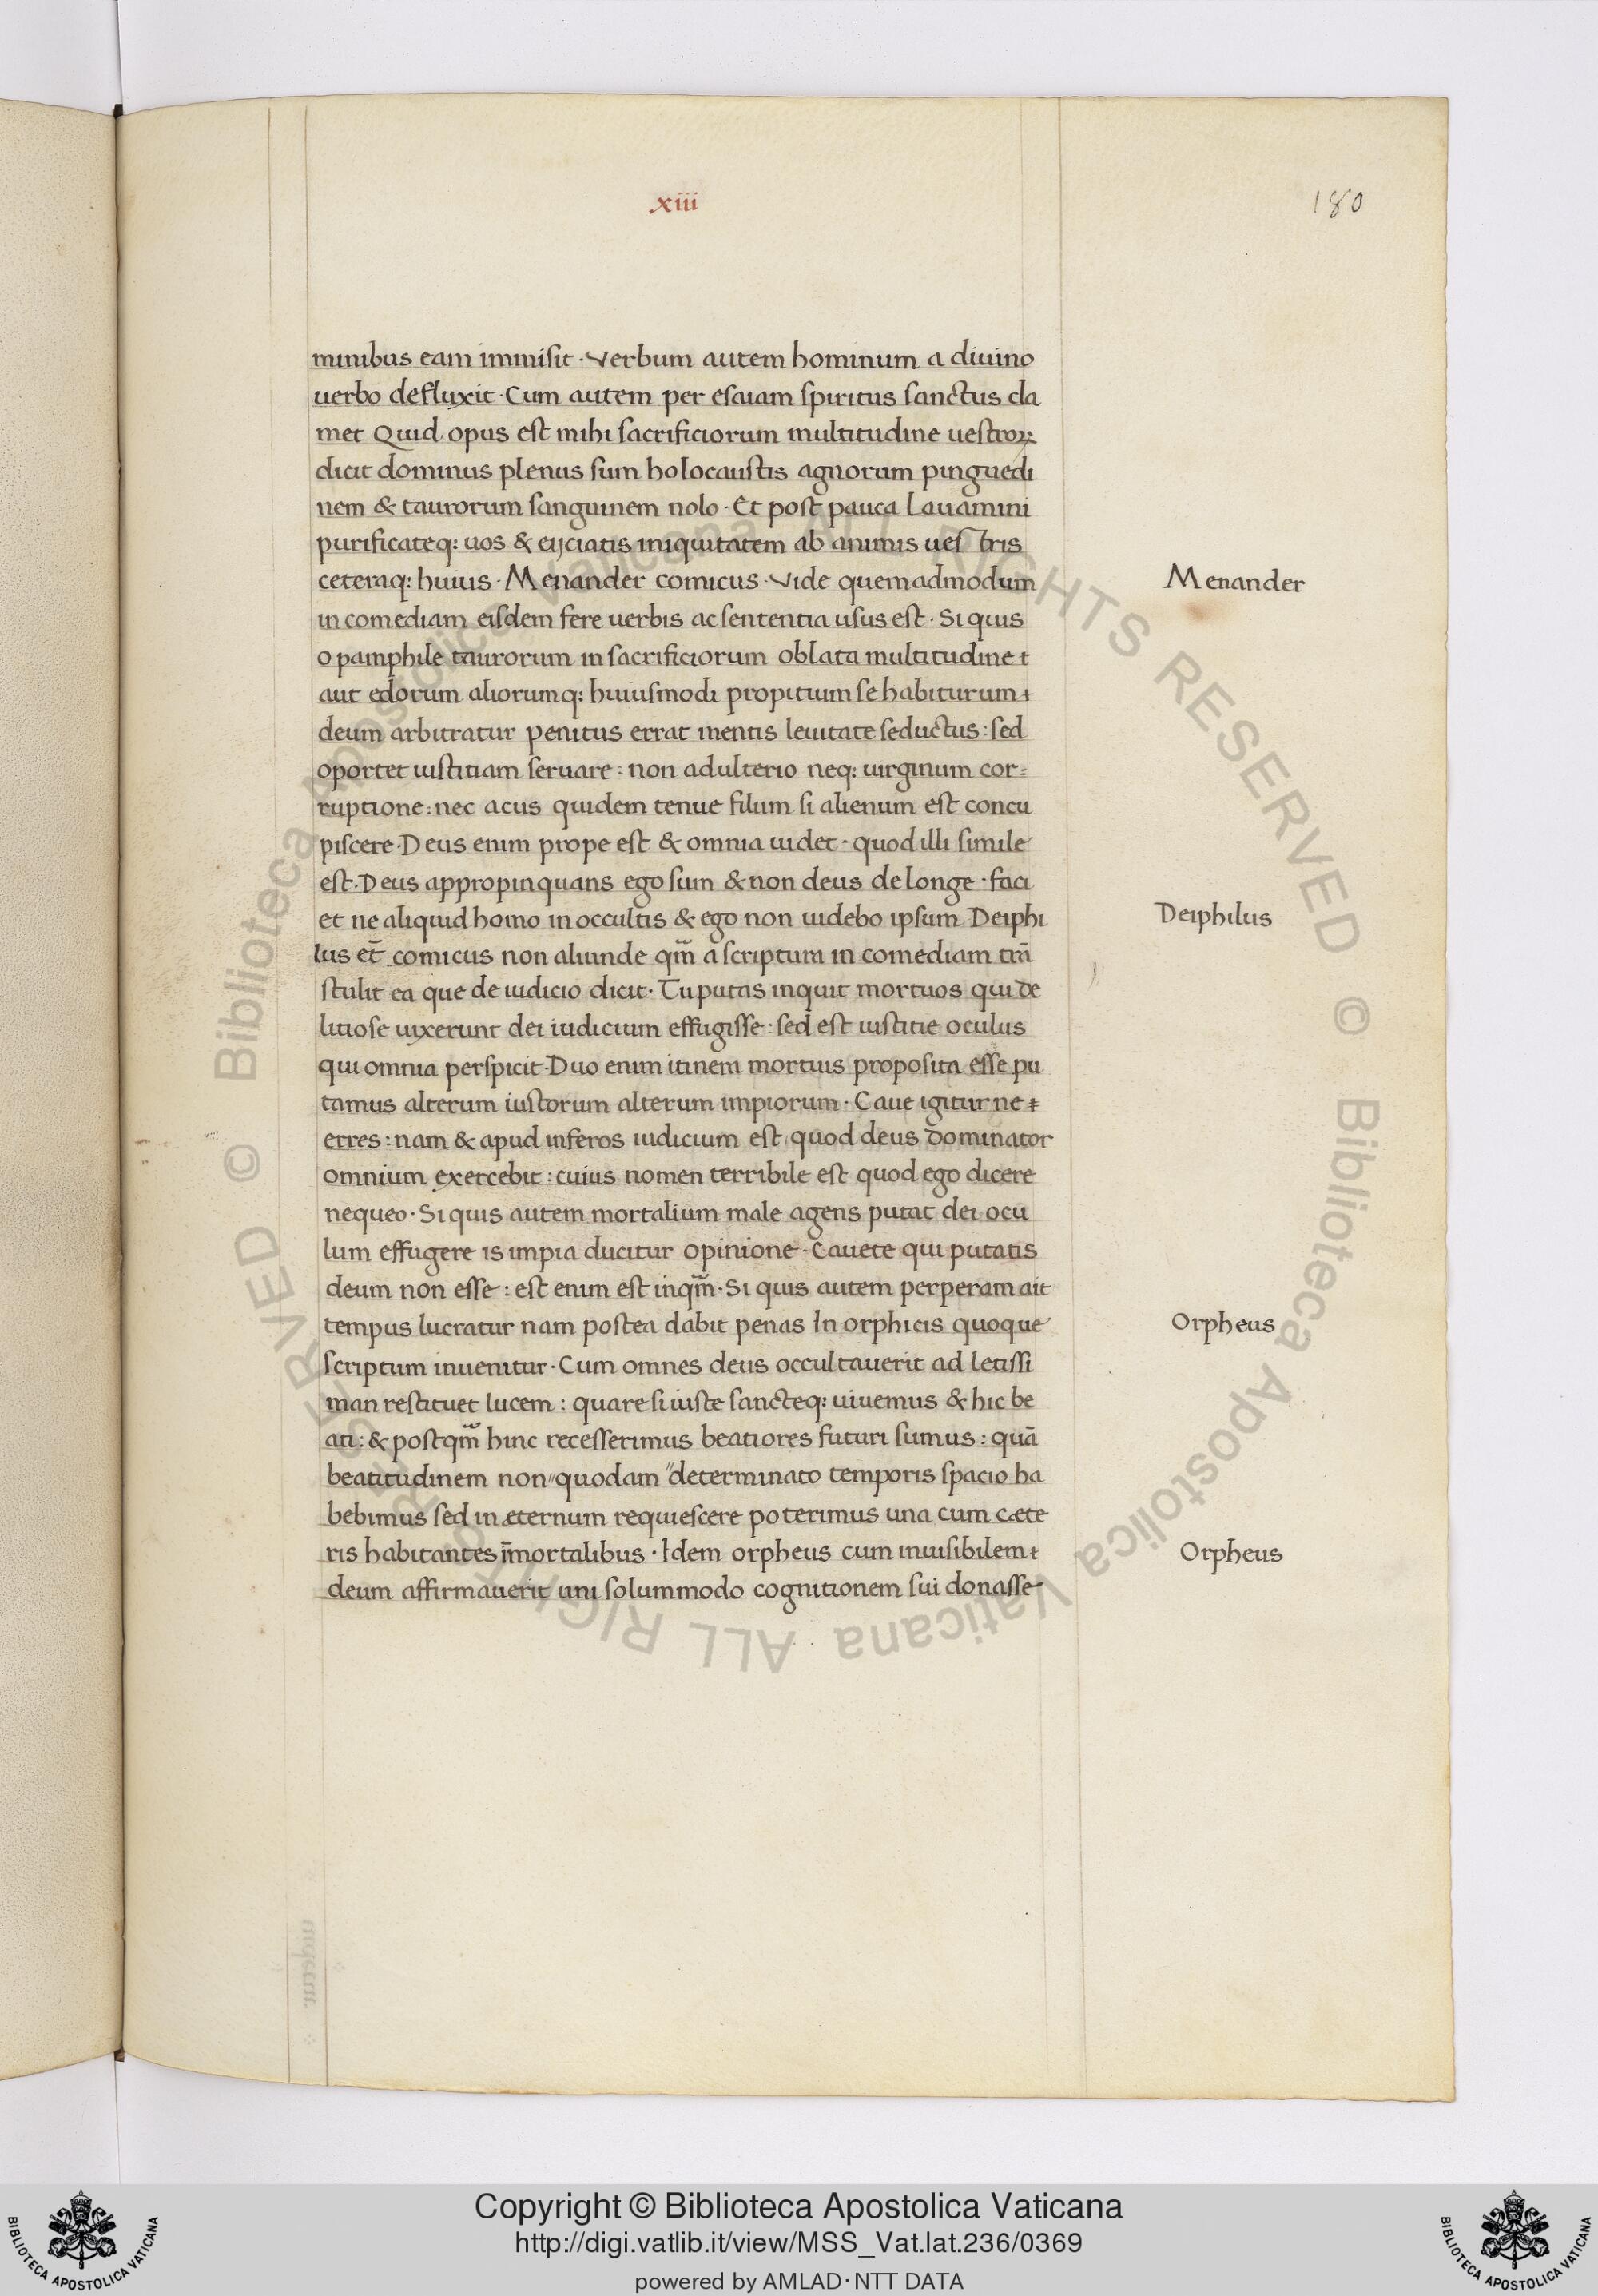 xiii
180
minibus eam immisit · Verbum autem hominum a diuino
uerbo defluxit · Cum autem per esaiam spiritus sanctus cla
met Quid opus est mihi sacrificiorum multitudine uestroꝝ
dicit dominus plenus sum holocaustis agnorum pinguedi
nem & taurorum sanguinem nolo · Et post pauca Lauamini
purificateq: uos & eijciatis iniquitatem ab animis uestris
ceteraq: huius · Menander comicus · Vide quemadmodum
Menander
in comediam eisdem fere uerbis ac sententia usus est · Si quis
o pamphile taurorum in sacrificiorum oblata multitudine
aut edorum aliorumq: huiusmodi propitium se habiturum
deum arbitratur penitus errat mentis leuitate seductus : sed
oportet iustitiam seruare : non adulterio neq: uirginum cor=
ruptione : nec acus quidem tenue filum si alienum est concu
piscere · Deus enim prope est & omnia uidet · quod illi simile
est · Deus appropinquans ego sum & non deus de longe · faci
et ne aliquid homo in occultis & ego non uidebo ipsum Deiphi
Deiphilus
lus et̄ comicus non aliunde qm̄ a scriptura in comediam trā
stulit ea que de iudicio dicit · Tu putas inquit mortuos qui de
litiose uixerunt dei iudicium effugisse : sed est iustitie oculus
qui omnia perspicit · Duo enim itinera mortuis proposita esse pu
tamus alterum iustorum alterum impiorum · Caue igitur ne
erres : nam & apud inferos iudicium est quod deus dominator
omnium exercebit : cuius nomen terribile est quod ego dicere
nequeo · Si quis autem mortalium male agens putat dei ocu
lum effugere is impia ducitur opinione · Cauete qui putatis
deum non esse : est enim est inqm̄ · Si quis autem perperam ait
tempus lucratur nam postea dabit penas In orphicis quoque
Orpheus
scriptum inuenitur · Cum omnes deus occultauerit ad letissi
man restituet lucem : quare si iuste sancteq: uiuemus & hic be
ati : & postqm̄ hinc recesserimus beatiores futuri sumus : quā
beatitudinem non "quodam "determinato temporis spacio ha
bebimus sed in æternum requiescere poterimus una cum cæte
ris habitantes īmortalibus · Idem orpheus cum inuisibilem
Orpheus
deum affirmauerit uni solummodo cognitionem sui donasse
Copyright © Biblioteca Apostolica Vaticana
http://digi.vatlib.it/view/MSS_Vat.lat.236/0369
powered by AMLAD·NTT DATA
BIBLIOTECA APOSTOLICA VATICANA
BIBLIOTECA APOSTOLICA VATICANA
© Biblioteca Apostolica Vaticana ALL RIGHTS RESERVED © Biblioteca Apostolica Vaticana ALL RIGHTS RESERVED